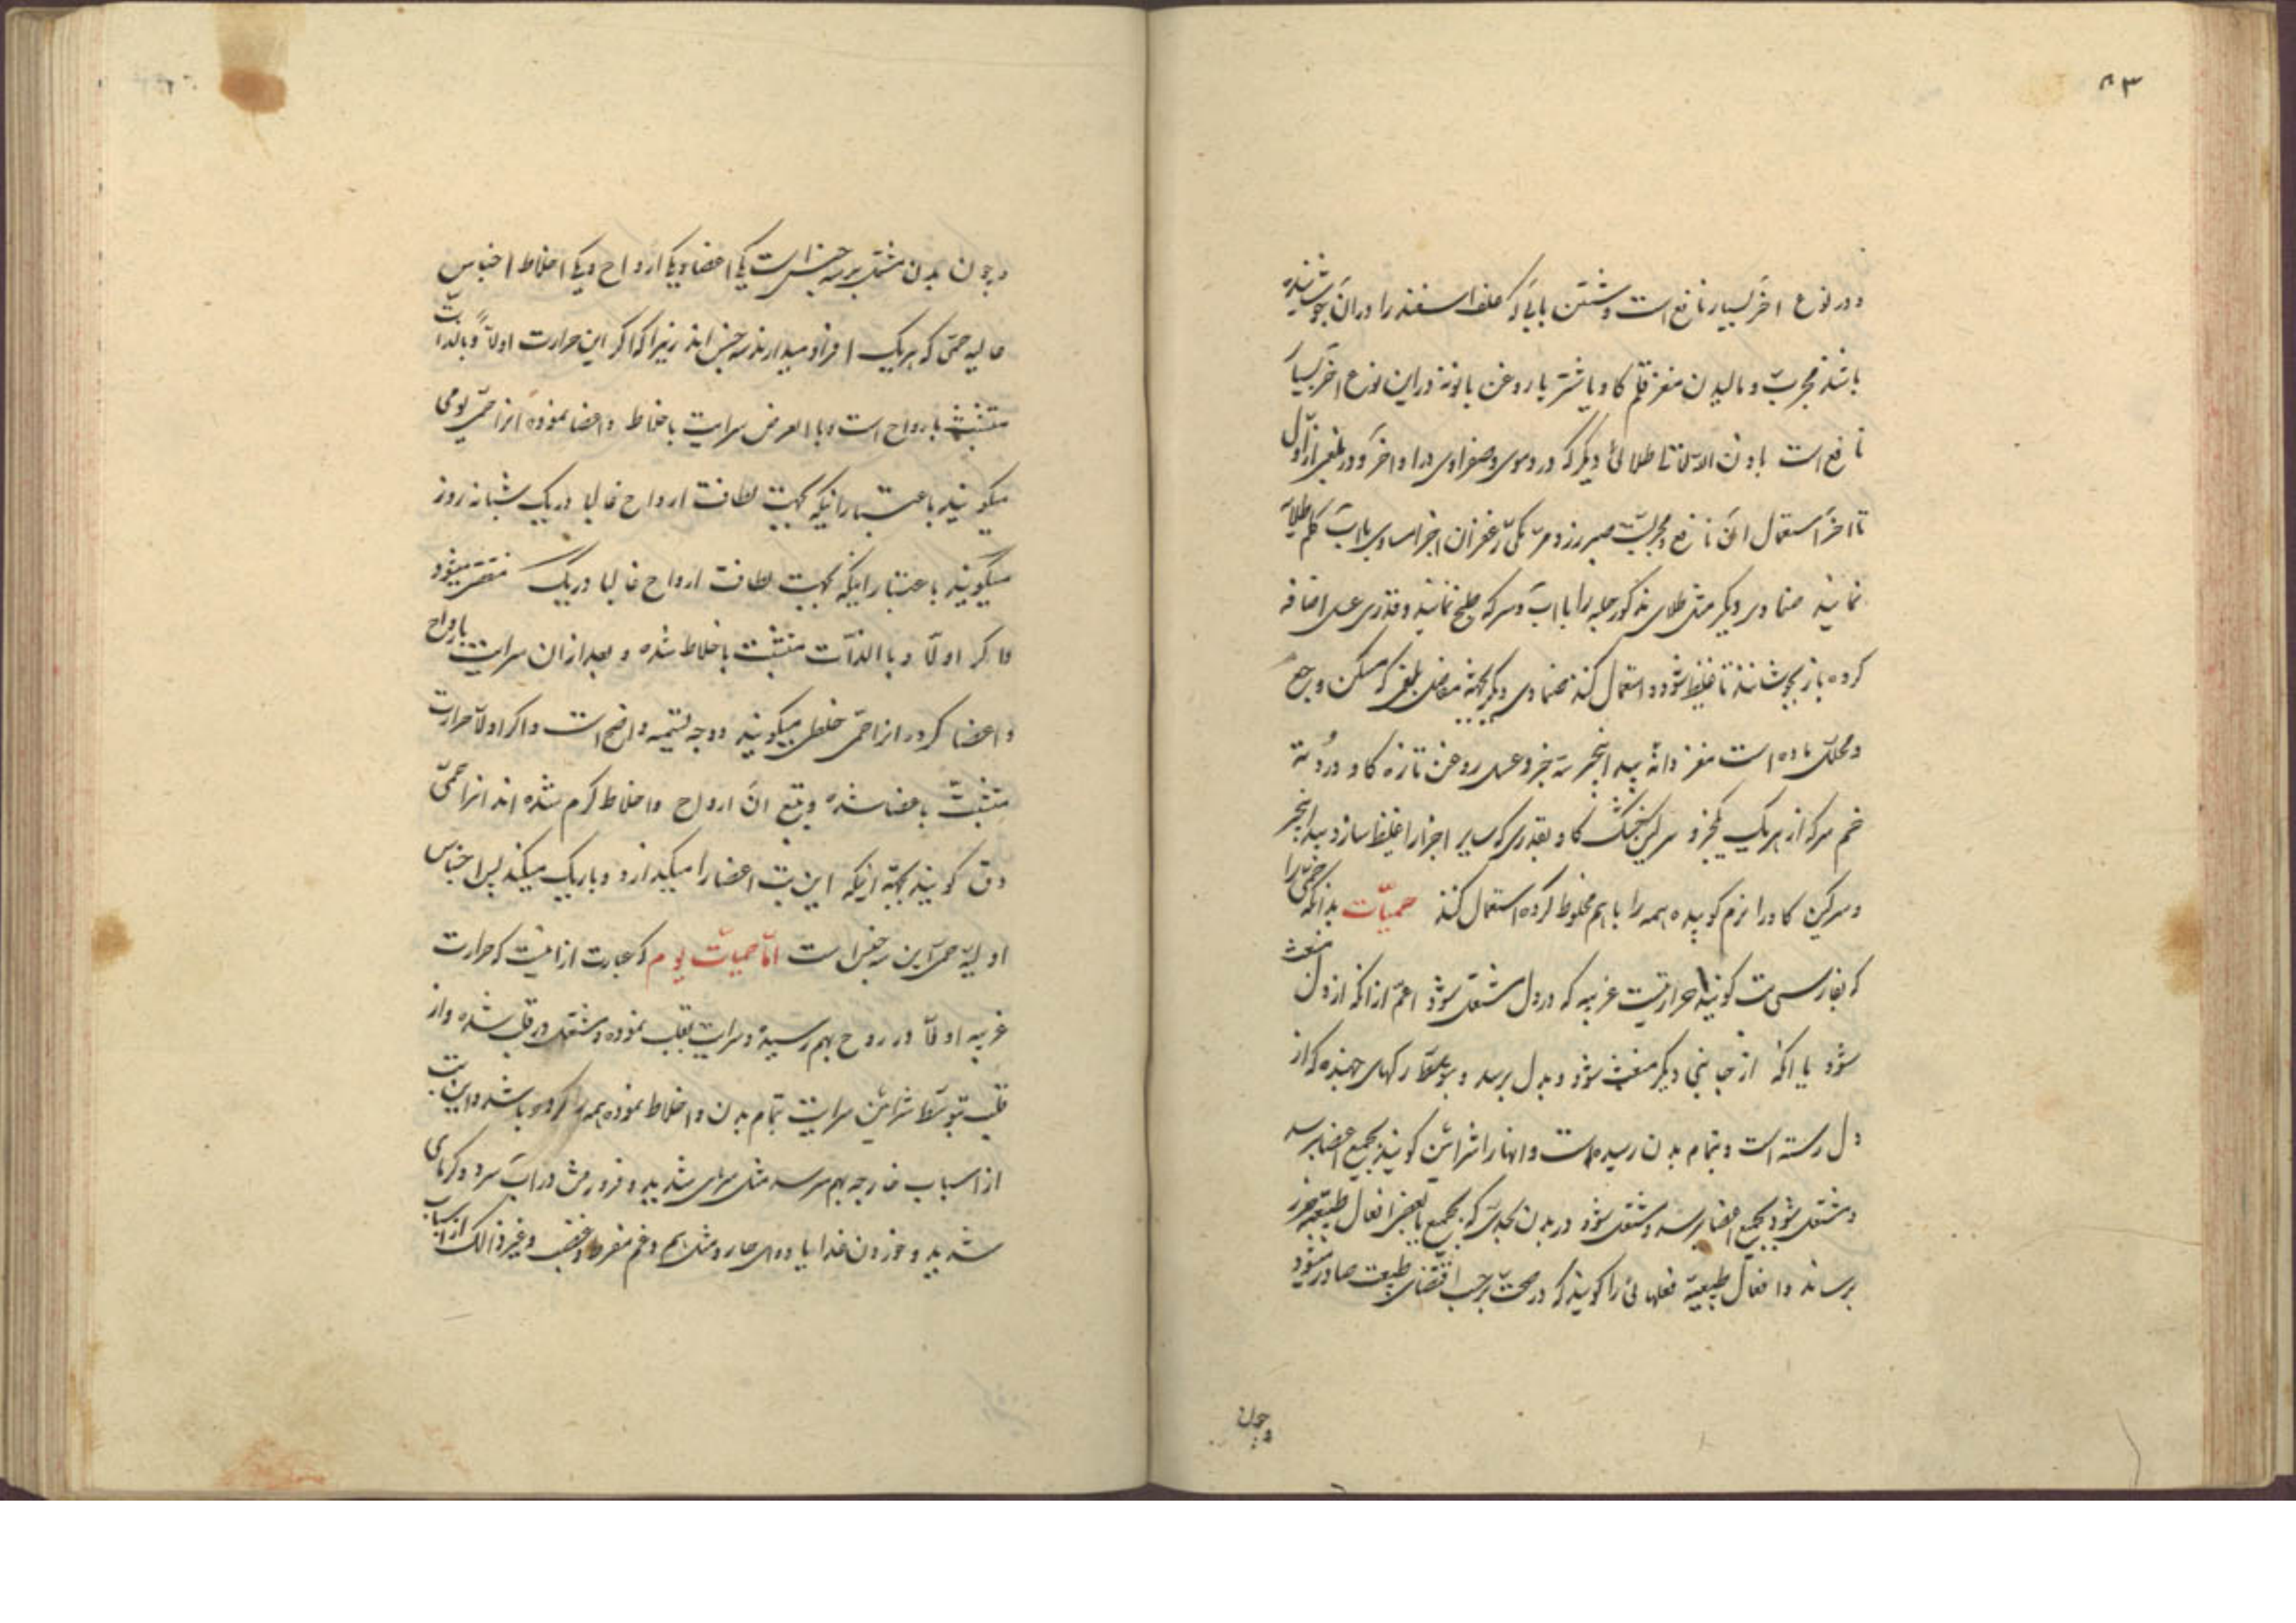 ۸۳
و در نوع اخر بسیار نافع است و شستن بابی که علف اسفند را در آن جوشانیده
باشند مجربّ و مالیدن مغز قلم کاو یا شتر با روغن بابونه در این نوع اخر بسیار
نافع است طلائی دیکر که در دموی و صفراوی در اواخر و در بلغمی از اول
تا اخر استعمال ان نافع و مجربست صبر زرد و مرّ مکی زعفران اجزا مساوی بااب کلم طلا
نمایند ضمادی دیکر مثل طلای مذکور حلبه را بااب و سرکه طبخ نمایند و قدری عسل اضافه
کرده باز بجوشانند تا غلیظ شود و استعمال کنند ضمادی دیکر بجهة مفاصل بلغمی که مسکن وجع
و محلل ماده است مغز دانه بید انجیر سه جزو عسل روغن تازه کاو دُردته
خم سرکه از هریک یکجزو سرکین خشک کاو بقدری که سایر اجزا را غلیظ سازد بید انجیر
و سرکین کاو را نرم کوبیده همه را باهم مخلوط کرده استعمال کنند حمیّات بدانکه حمّی را
که بفارسی تب کویند حرارتیست غریبه که در دل مشتعل شود اعمّ از انکه از دل منبعث
شود یا انکه از جانبی دیکر منبعث شود و بدل برسد و بتوسط رکهای جهنده که از
دل رسته است و بتمام بدن رسیده است و انها را شرائین کویند بجمیع اعضا برسد
و مشتعل شود بجمیع اعضا برسد و مشتعل شود در بدن بحدی که بجمیع یا بعضی افعال طبیعیه ضرر
برساند و افعال طبیعیّه فعلهائی را کویند که در صحّت برحسب اقتضای طبیعت صادر میشود
و چون
و چون بدن مشتمل بر سه جنس است یکی اعضا و یکی ارواح و یکی اخلاط اجناس
عالیه حمّی که هریک افراد میدارند سه جنس اند زیرا که اکر این حرارت اولاً و بالذات
متشبث بارواح است و بالعرض سرایت باخلاط و اعضا نموده انرا حمّی یومی
میکویند باعتبار اینکه بجهت لطافت ارواح غالبا در یک شبانه روز
میکویند باعتبار اینکه بجهت لطافت ارواح غالبا در یک منقضی میشود
و اکر اولا و باالذات متشبث باخلاط شده و بعد از ان سرایت بارواح
و اعضا کرد انرا حمّی خلطی میکویند و وجه تسمیه واضح است و اکر اولا حرارت
متشبث باعضا شده و بتبع ان ارواح و اخلاط کرم شده اند انرا حمّی
دق کویند بجهة اینکه این تب اعضا را میکدازد و باریک میکند پس اجناس
اولیه حمّی این سه جنس است امّا حمیّات یوم که عبارت از انیست که حرارت
غریبه اولا در روح بهم رسیده و سرایت بقلب نموده و مشتعل در قلب شده و از
قلب بتوسط شرائین سرایت بتمام بدن و اخلاط نموده همه را کرده باشد و این تب
از اسباب خارجه بهم میرسد مثل سرمای شدید و فرو رفتن در اب سرد و کرمای
شدید و خوردن غذا یا دوای حار و مثل هم و غم مفرط و غضب و غیر ذالک از اسباب